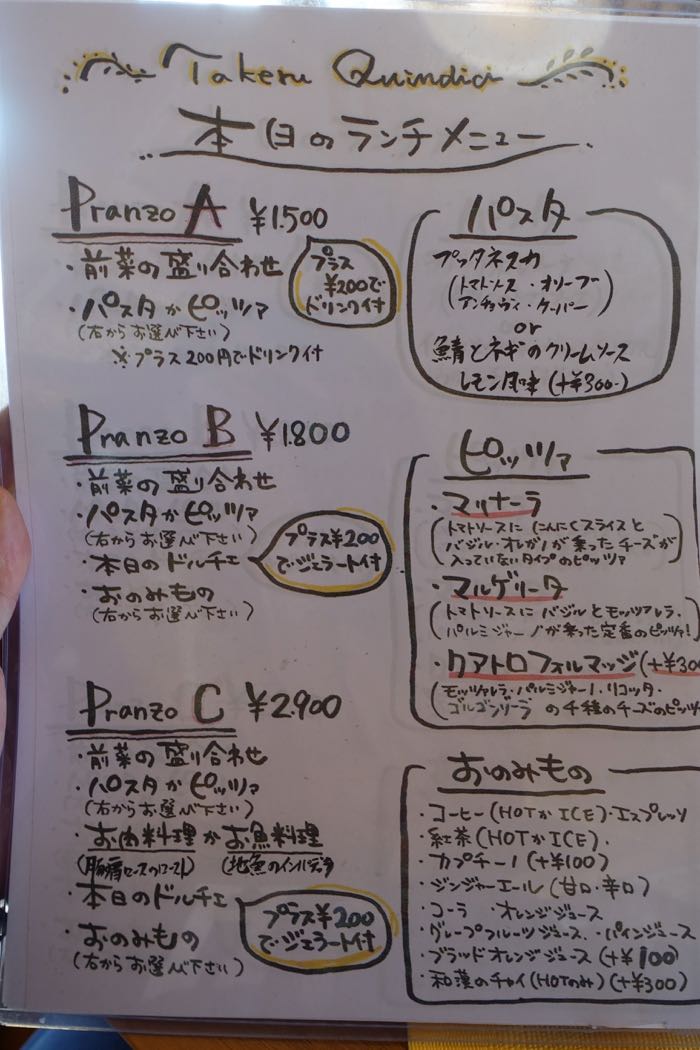 Takeru Quindici
本日のランチメニュー
Pranzo A ¥1.500
・前菜の盛り合わせ
・パスタかピッツァ
(右からお選び下さい)
※プラス200円でドリンク付
プラス
¥200で
ドリンク付
Pranzo B ¥1.800
・前菜の盛り合わせ
・パスタかピッツァ
(右からお選び下さい)
・本日のドルチェ
・おのみもの
(右からお選び下さい)
プラス¥200
で・ジェラート付
Pranzo C ¥2.900
・前菜の盛り合わせ
・パスタかピッツァ
(右からお選び下さい)
・お肉料理かお魚料理
(地魚の
・本日のドルチェ
・おのみもの
(右からお選び下さい)
プラス¥200
で・ジェラート付
パスタ
プッタネスカ
(トマトソース・オリーブ
アンチョヴィ・ケーパー)
or
鯖とネギのクリームソース
レモン風味 (+¥300-)
ピッツァ
・マリナーラ
(トマトソースに にんにくスライスと
バジル・オレガノが乗ったチーズが
入っていないタイプのピッツァ)
・マルゲリータ
(トマトソースに バジルとモッツァレラ・
パルミジャーノが乗った定番のピッツァ!)
・クアトロフォルマッジ(+¥300
(モッツァレラ・パルミジャーノ・リコッタ・
ゴルゴンゾーラ の4種のチーズのピッツ
おのみもの
・コーヒー(HOTかICE)・エスプレッソ
・紅茶(HOTかICE)・
・カプチーノ(+¥100)
・ジンジャーエール(甘口・辛口)
・コーラ ・オレンジジュース
・グレープフルーツジュース・・パインジュース
・ブラッドオレンジジュース(+¥100)
・和漢のチャイ(HOTのみ)(+¥300)